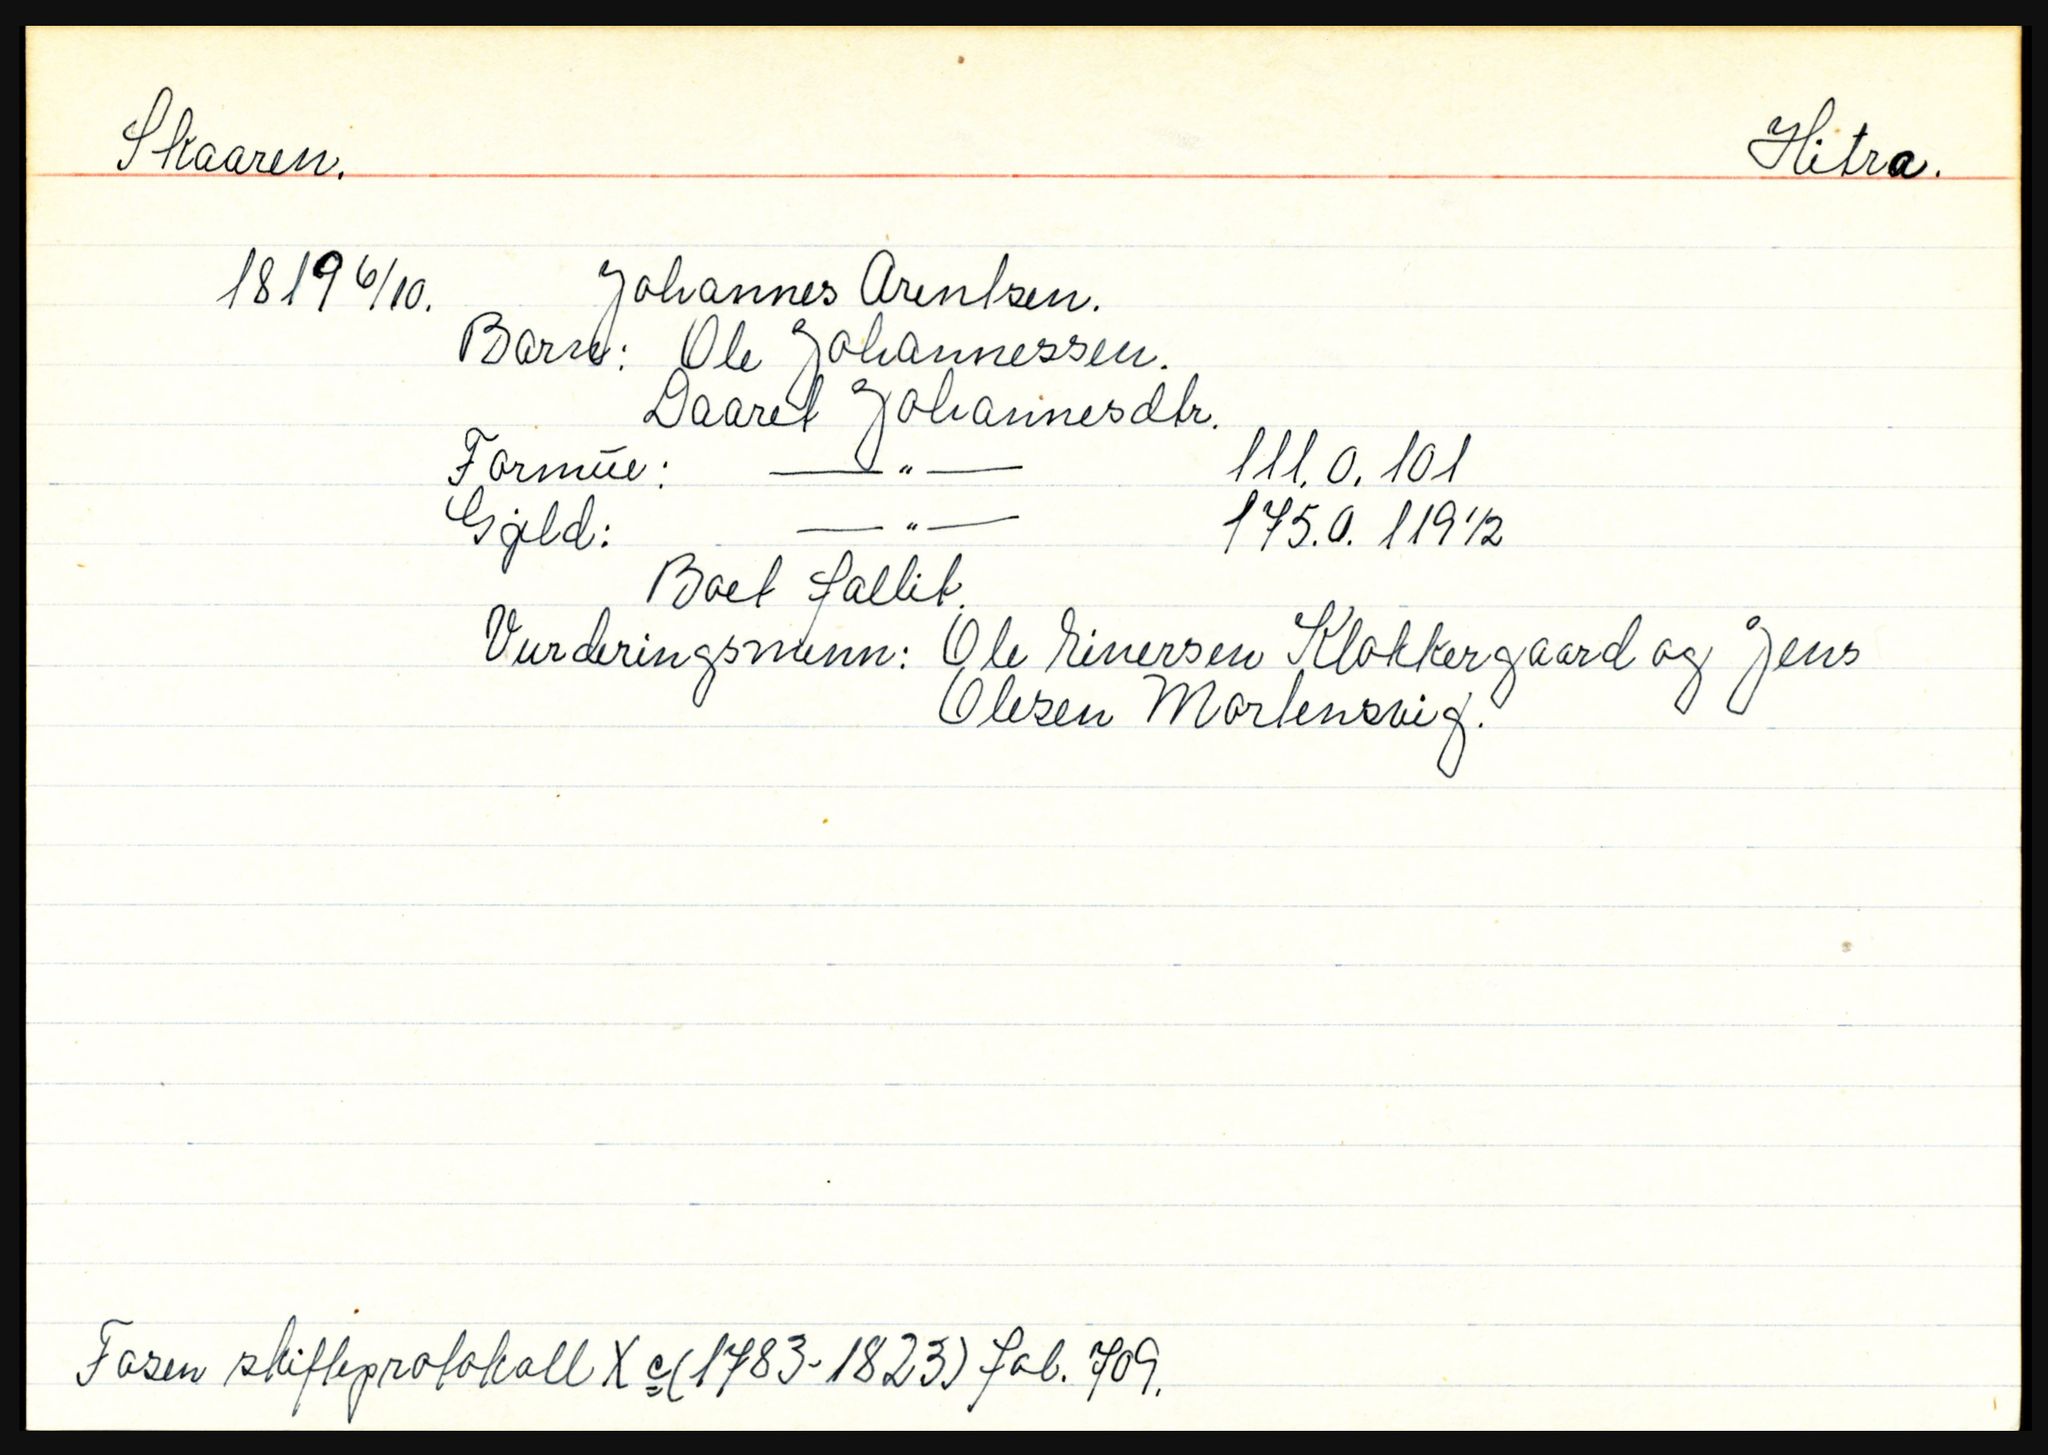 Skaaren. Hitra.
1819 6/10. Johannes Arentsen.
Barn: Ole Johannessen.
Daaret Johannesdtr.
Formue: —„— 111. 0. 101
Gjeld: —„— 175. 0. 119 1/2
Boet fallit.
Vurderingsmenn: Ole Einersen Klokkergaard og Jens
Olesen Mortensvig.
Fosen skifteprotokoll X c (1783-1823) fol. 709.